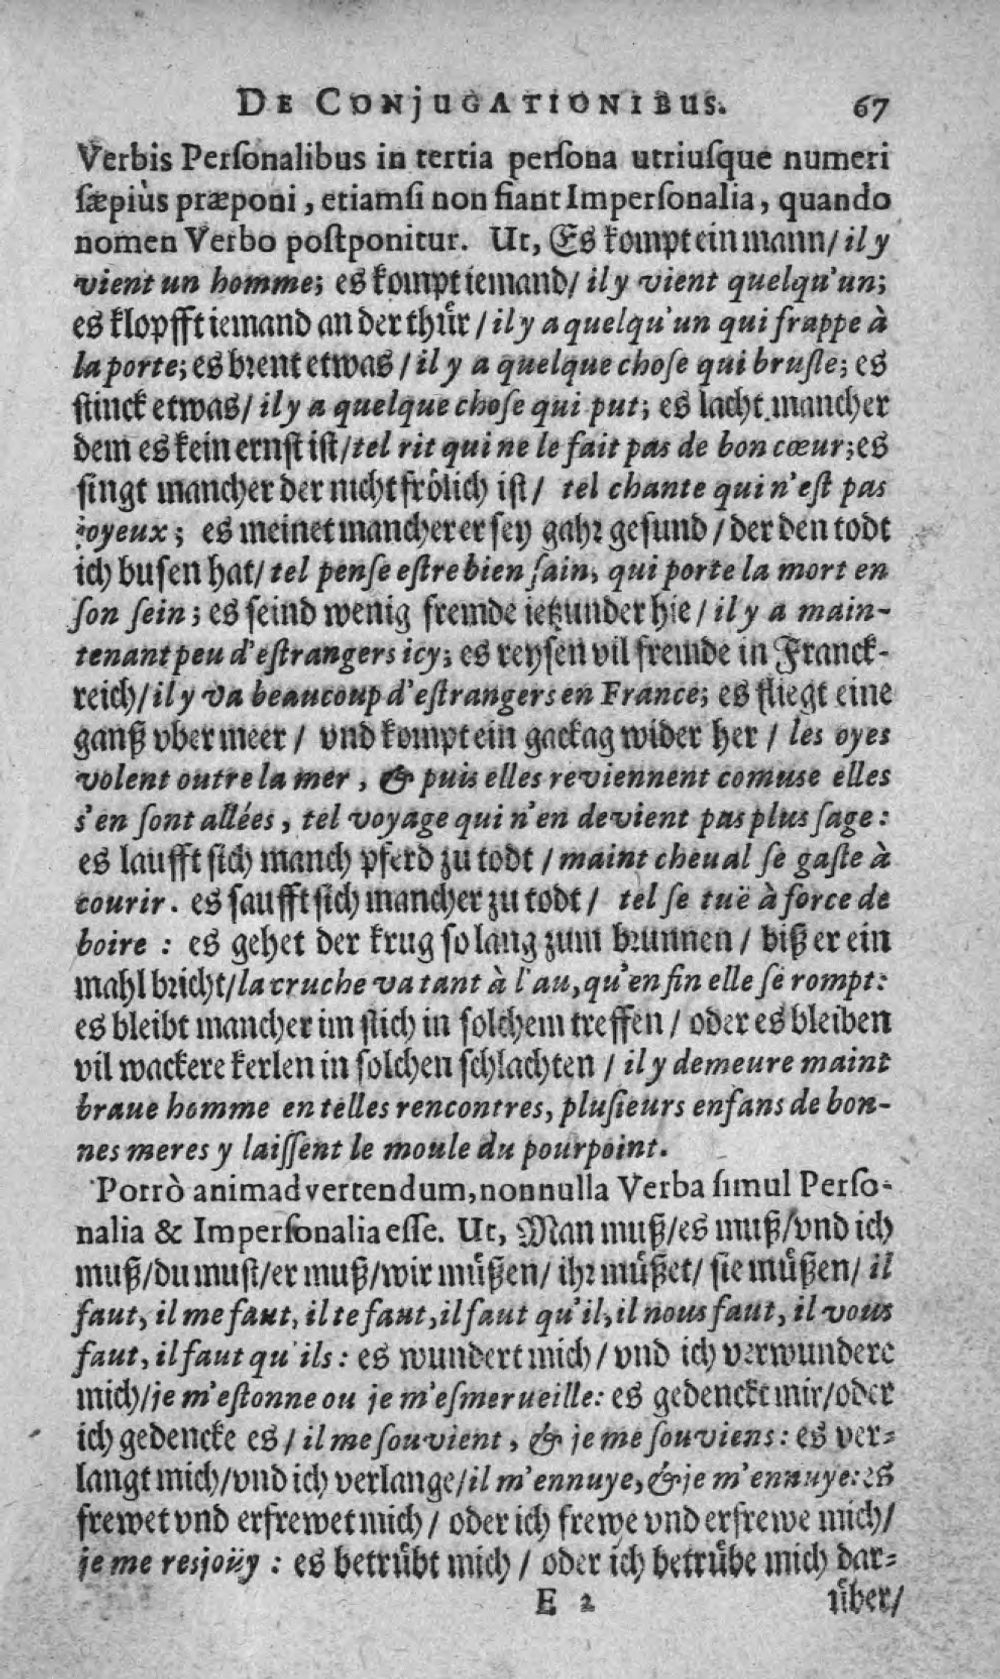 DE CONjUGATIONIBUS. 67
Verbis Perſonalibus in tertia perſona utriuſque numeri
ſæpiùs præponi, etiamſi non fiant Imperſonalia, quando
nomen Verbo poſtponitur. Ut, Es kompt ein mann/ il y
vient un homme; es kompt iemand/ il y vient quelqu'un;
es klopfft iemand an der thuͤr / il y a quelqu'un qui frappe à
la porte; es brent etwas / il y a quelque choſe qui bruſle; es
ſtinckt etwas/ il y a quelque choſe qui put; es lacht mancher
dem es kein ernſt iſt/ tel rit qui ne le fait pas de bon cœur; es
ſingt mancher der nicht froͤlich iſt/ tel chante qui n'eſt pas
joyeux; es meinet mancher er ſey gahr geſund / der den todt
ich buſen hat/ tel penſe eſtre bien ſain, qui porte la mort en
ſon ſein; es ſeind wenig fremde ietzunder hie / il y a main-
tenant peu d'eſtrangers icy; es reyſen vil fremde in Franck-
reich/ il y va beaucoup d'eſtrangers en France; es fliegt eine
ganß vber meer / vnd kompt ein gackag wider her / les oyes
volent outre la mer, & puis elles reviennent comme elles
s'en ſont allées, tel voyage qui n'en devient pas plus ſage:
es laufft ſich manch pferd zu todt / maint cheual ſe gaſte à
courir. es ſaufft ſich mancher zu todt / tel ſe tuë à force de
boire : es gehet der krug ſo lang zum brunnen / biß er ein
mahl bricht/ la cruche va tant à l'au, qu'en fin elle ſe rompt:
es bleibt mancher im ſtich in ſolchem treffen / oder es bleiben
vil wackere kerlen in ſolchen ſchlachten / il y demeure maint
braue homme en telles rencontres, pluſieurs enfans de bon-
nes meres y laiſſent le moule du pourpoint.
Porrò animadvertendum, nonnulla Verba ſimul Perſo-
nalia & Imperſonalia eſſe. Ut, Man muß/ es muß/ vnd ich
muß/ du muſt/ er muß/ wir muͤßen/ ihr muͤßet/ ſie muͤßen/ il
faut, il me faut, il te faut, il faut qu'il, il nous faut, il vous
faut, il faut qu'ils: es wundert mich / vnd ich verwundere
mich/ je m'eſtonne ou je m'eſmerueille: es gedenckt mir/ oder
ich gedencke es / il me ſouvient, & je me ſouviens: es ver-
langt mich/ vnd ich verlange/ il m'ennuye, & je m'ennuye: es
frewet vnd erfrewet mich / oder ich frewe vnd erfrewe mich/
je me resjoüy : es betruͤbt mich / oder ich betruͤbe mich dar-
E 2 uͤber/